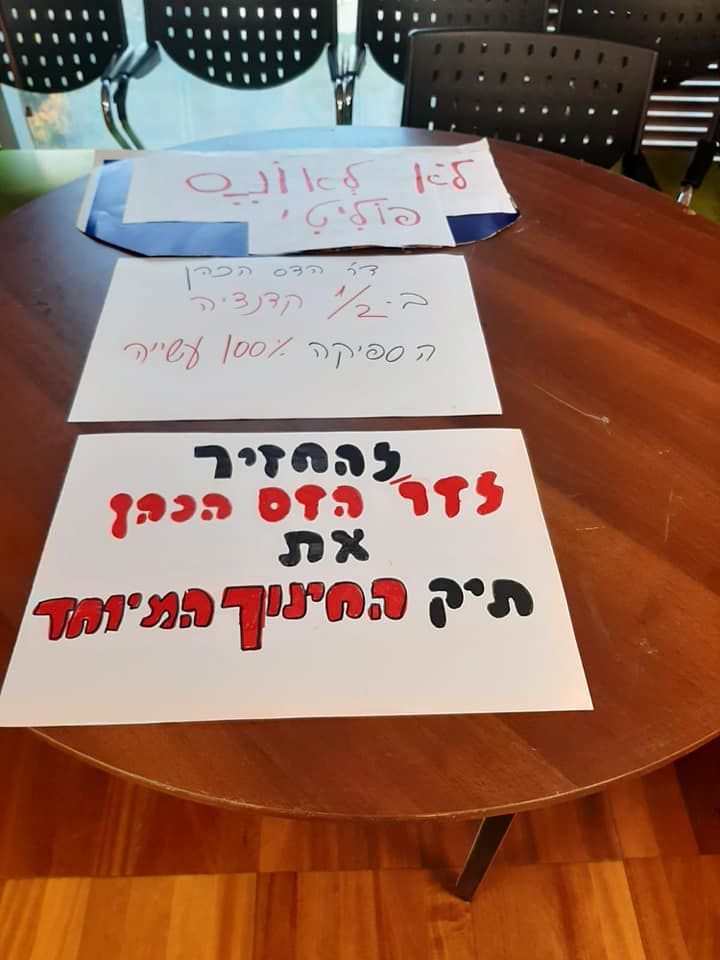 לֹא לְאוֹנֶס
פּוֹלִיטִי
דר' הדס הכהן
ב-1/2 קדנציה
הספיקה 100% עשייה
להחזיר
לדר' הדס הכהן
את
תיק החינוך המיוחד